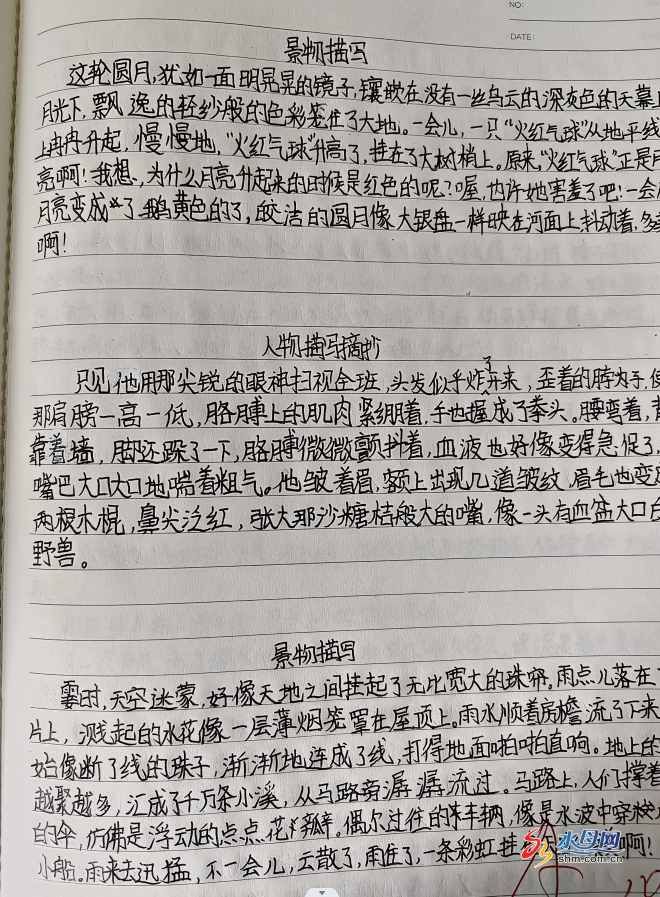 NO:
DATE:
景物描写
这轮圆月,犹如一面明晃晃的镜子,镶嵌在没有一丝乌云的深灰色的天幕
月光下,飘逸的轻纱般的色彩笼住了大地。一会儿,一只“火红气球”从地平线
上冉冉升起,慢慢地,“火红气球”升高了,挂在了大树梢上。原来,“火红气球”正是
亮啊!我想,为什么月亮升起来的时候是红色的呢?喔,也许她害羞了吧!一会
月亮变成了鹅黄色的了,皎洁的圆月像大银盘一样映在河面上抖动着,多
啊!
人物描写摘抄
只见他用那尖锐的眼神扫视全班,头发似乎炸了开来,歪着的脖子,使
那肩膀一高一低,胳膊上的肌肉紧绷着,手也握成了拳头。腰弯着,背
靠着墙,脚还跺了一下,胳膊微微颤抖着,血液也好像变得急促了,
嘴巴大口大口地喘着粗气。他皱着眉,额上出现几道皱纹,眉毛也变成
两根木棍,鼻尖泛红,张大那沙糖桔般大的嘴,像一头有血盆大口
野兽。
景物描写
霎时,天空迷蒙,好像天地之间挂起了无比宽大的珠帘。雨点儿落在
片上,溅起的水花像一层薄烟笼罩在屋顶上。雨水顺着房檐流了下来
始像断了线的珠子,渐渐地连成了线,打得地面啪啪直响。地上的
越聚越多,汇成了千万条小溪,从马路旁潺潺流过。马路上,人们撑着
的伞,仿佛是浮动的点点花瓣。偶尔过往的车辆,像是水波中穿梭
小船。雨来去迅猛,不一会儿,云散了,雨住了,一条彩虹挂 啊!
水母网
shm.com.cn